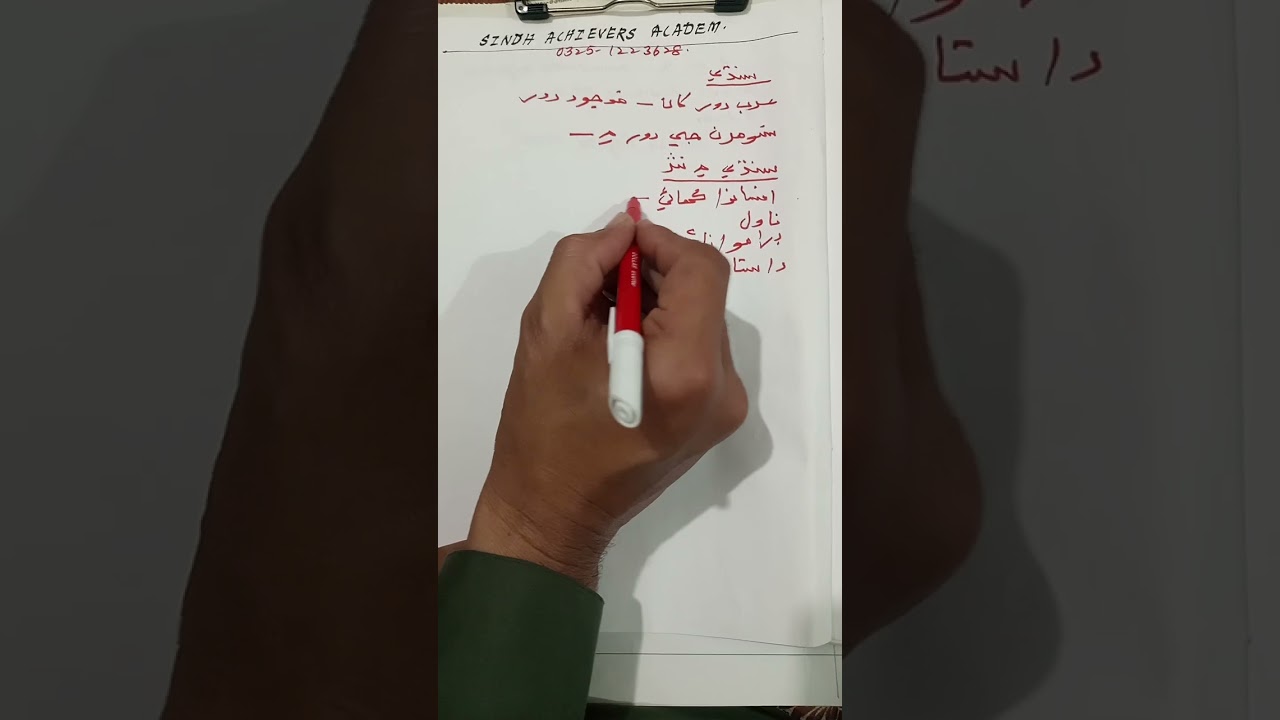 SINDH ACHIEVERS ACADEM.
0325-1223628.
سنڌي
عرب دور کان – موجود دور
سومرن جي دور ۾ –
سنڌي ۾ نثر
افسانوا ڪهاڻي –
ناول
داستا